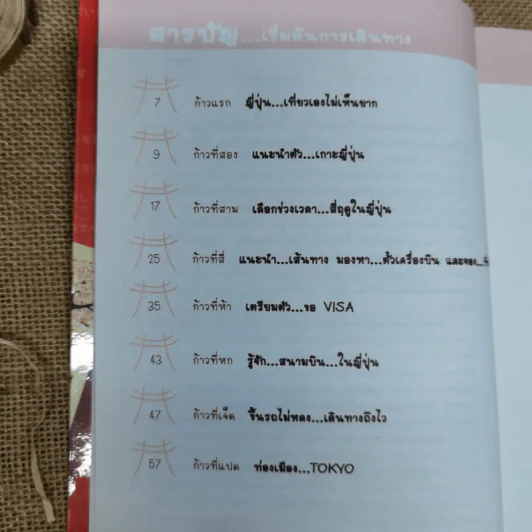 สารบัญ...เริ่มต้นการเดินทาง
7 ก้าวแรก ญี่ปุ่น...เที่ยวเองไม่เห็นยาก
9 ก้าวที่สอง แนะนำตัว...เกาะญี่ปุ่น
17 ก้าวที่สาม เลือกช่วงเวลา...สี่ฤดูในญี่ปุ่น
25 ก้าวที่สี่ แนะนำ...เส้นทาง มองหา...ตั๋วเครื่องบิน และจอง...
35 ก้าวที่ห้า เตรียมตัว...ขอ VISA
43 ก้าวที่หก รู้จัก...สนามบิน...ในญี่ปุ่น
47 ก้าวที่เจ็ด ขึ้นรถไม่หลง...เดินทางถึงไว
57 ก้าวที่แปด ท่องเมือง...TOKYO